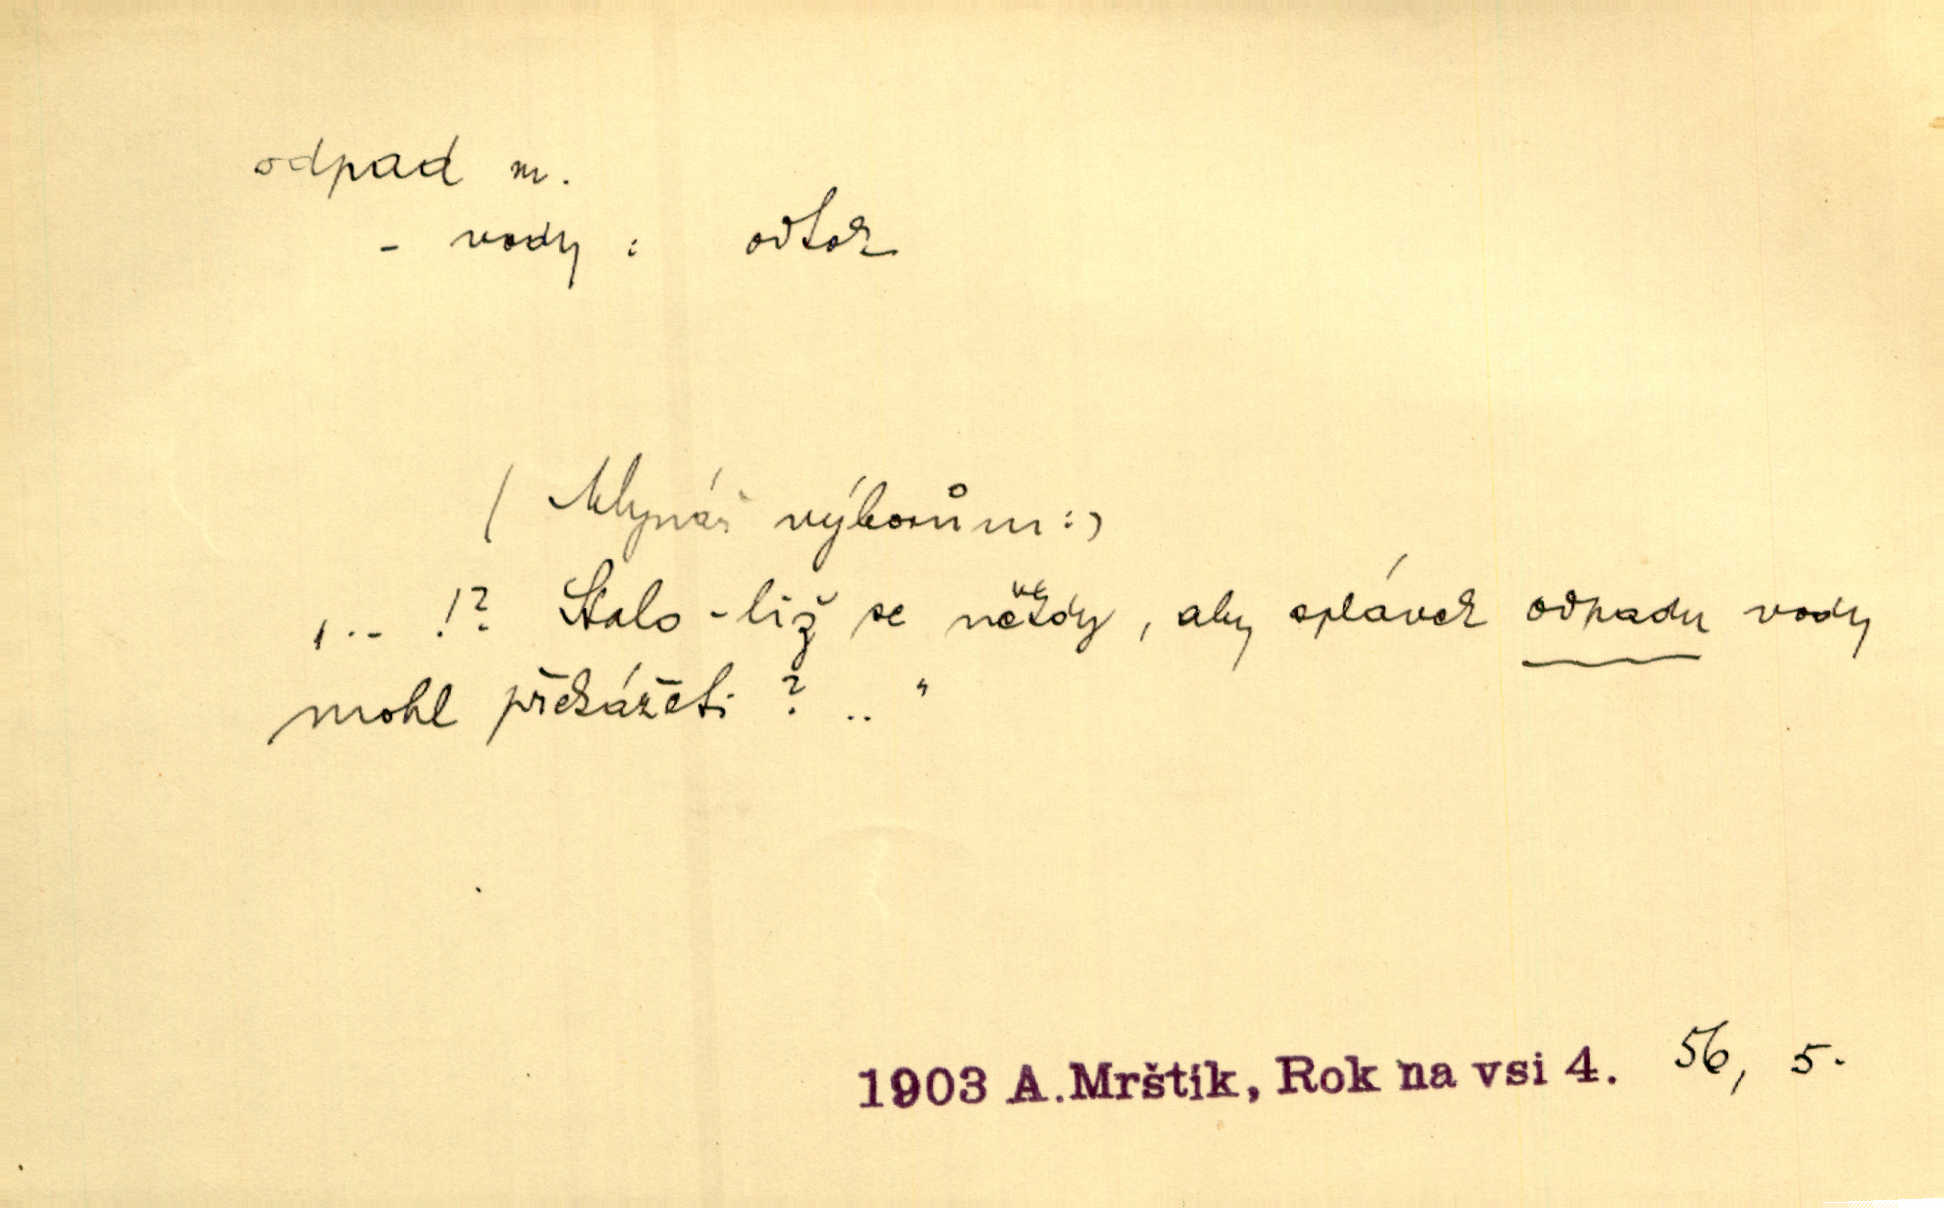 odpad m.
- vody : odtok
( Mlynář výborům:)
„.. !? Stalo-liž se někdy, aby splávek odpadu vody
mohl překážeti ? .. "
1903 A.Mrštík, Rok na vsi 4. 56, 5.